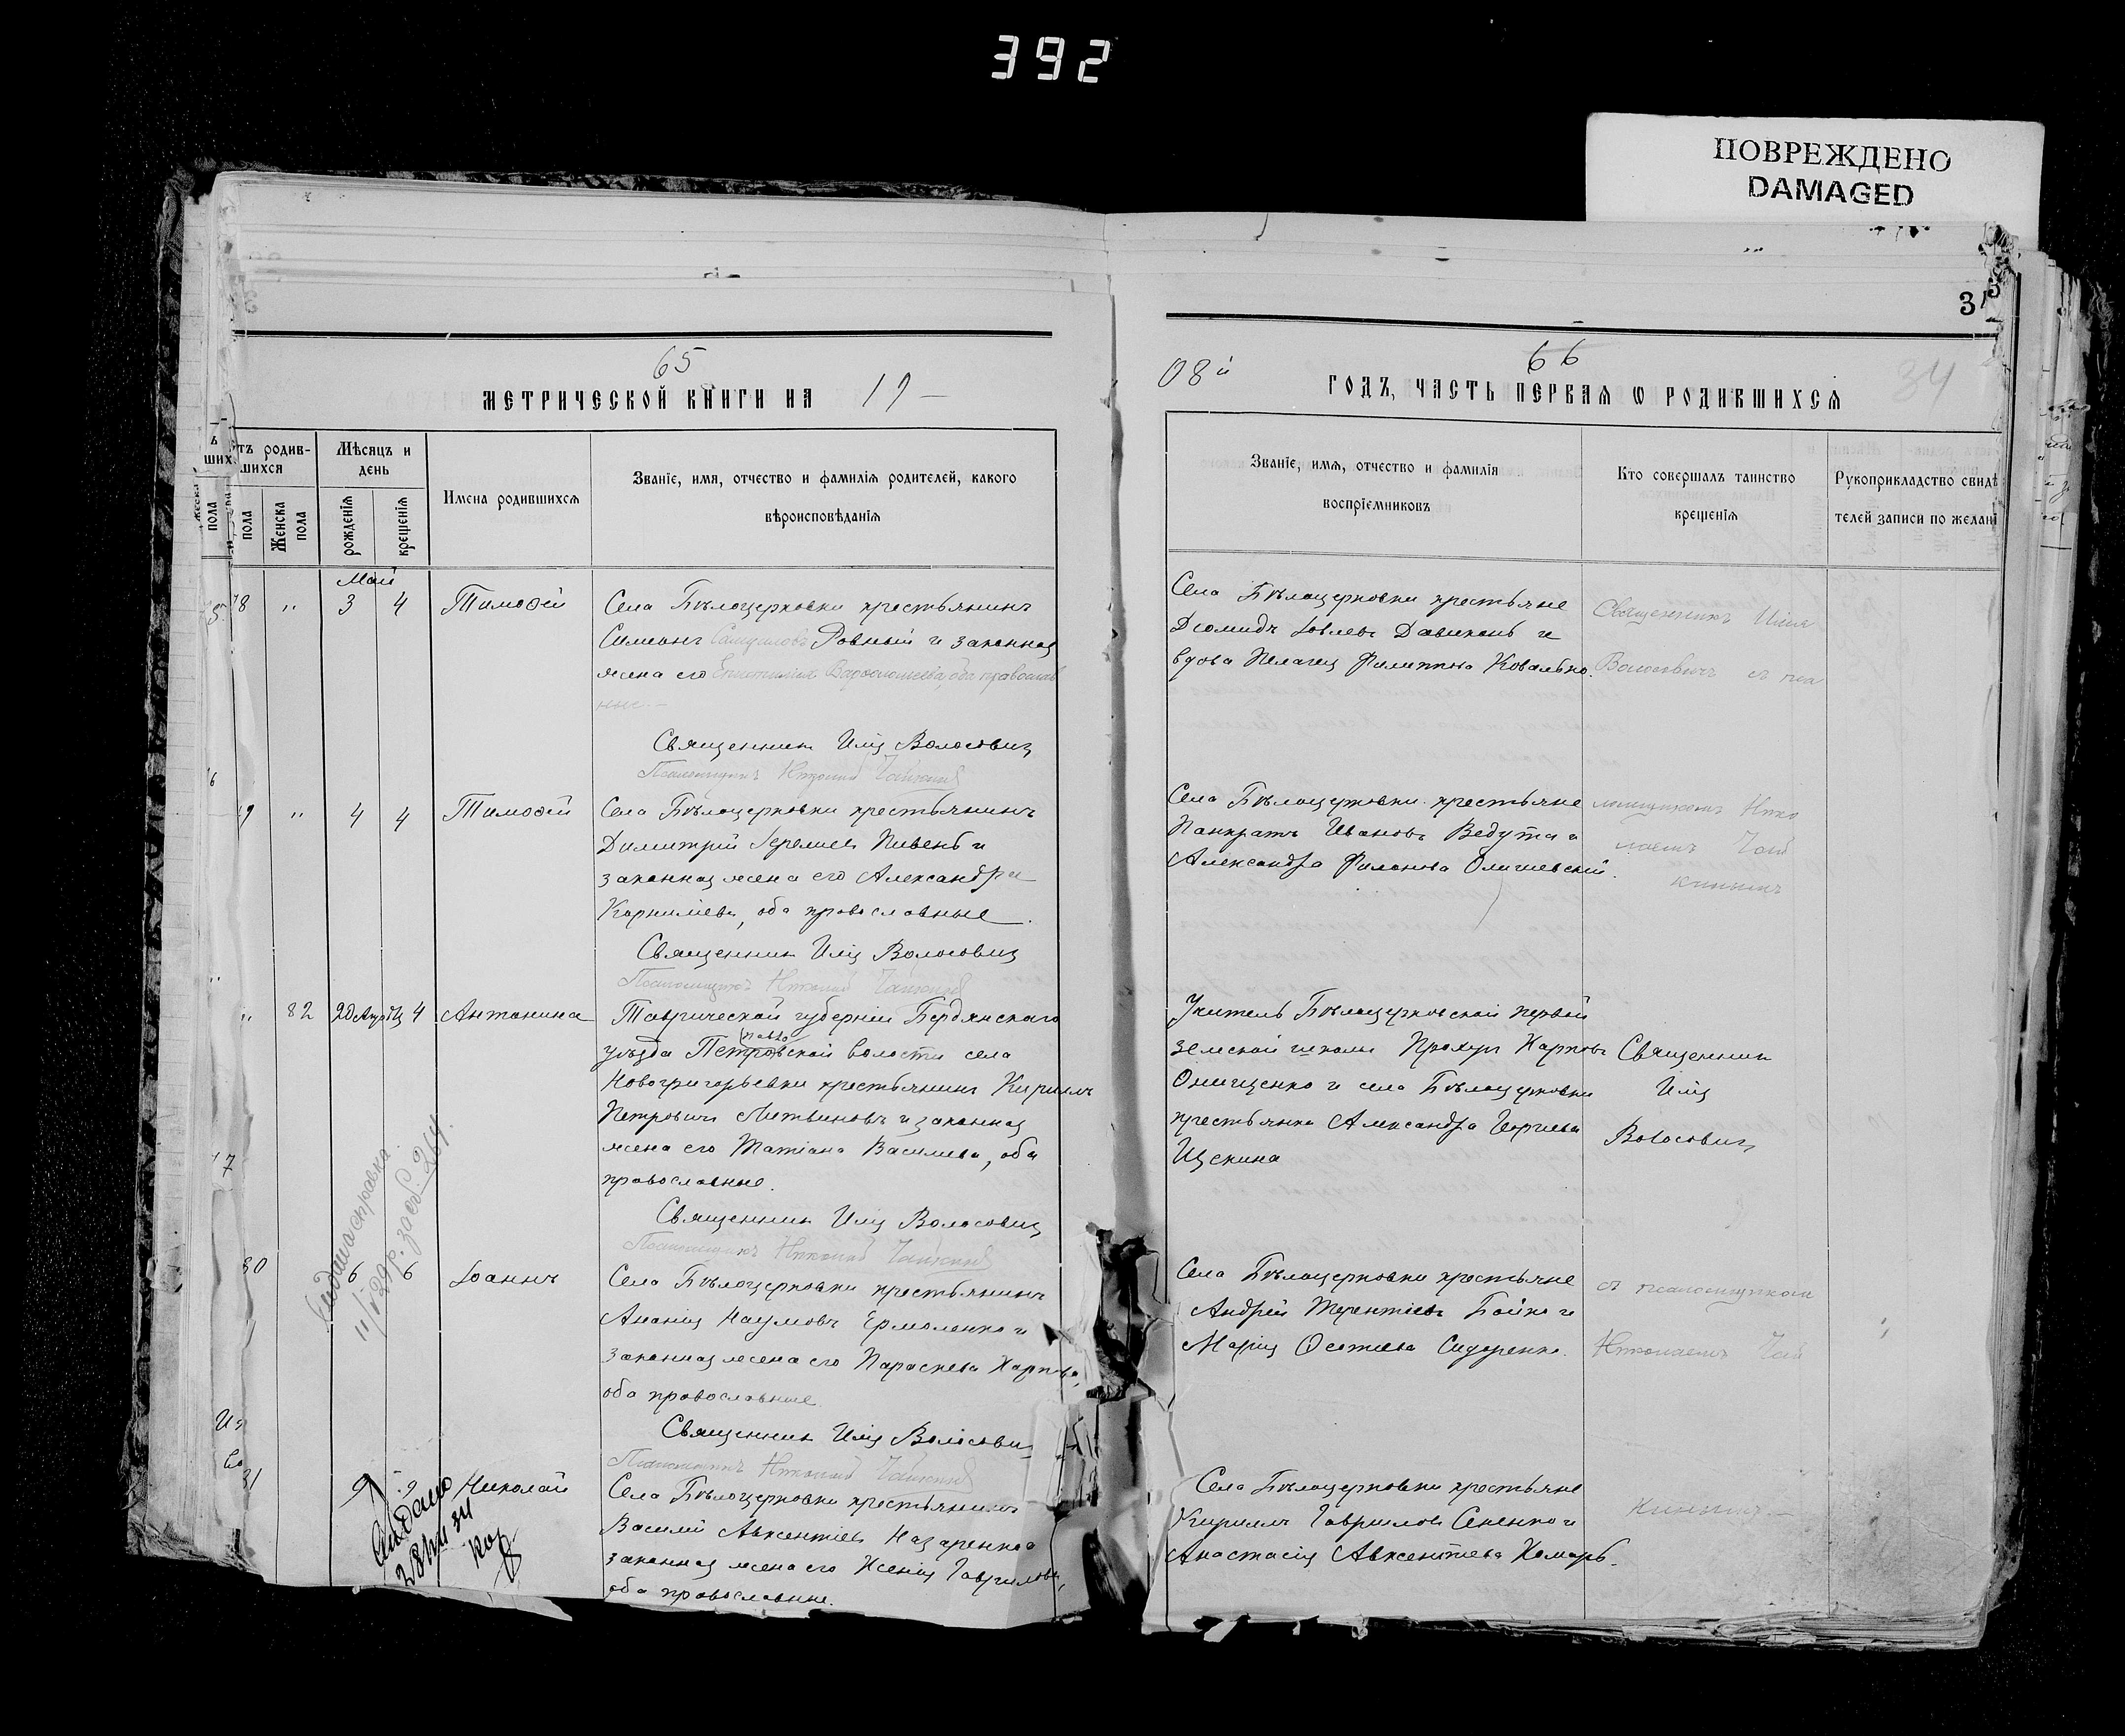 392
ПОВРЕЖДЕНО
DAMAGED
65
МЕТРИЧЕСКОЙ КНИГИ НА 19
тъ родив-
шихся
Мѣсяцъ и
день
Имена родившихся
Званіе, имя, отчество и фамилія родителей, какого
вѣроисповѣданія
пола
Женска
пола
рожденія
крещенія
Май
78 " 3 4 Тимофей
Села Бѣлоцерковки крестьянинъ
Симеонъ Самуиловъ Ровный и законная
жена его Епистимія Варфоломеева, оба православ
ные.
Священникъ Илія Волосовичъ
Псаломщикъ Николай Чайкинъ
79 " 4 4 Тимофей
Села Бѣлоцерковки крестьянинъ
Димитрій Іереміевъ Пивень и
законная жена его Александра
Корниліева, оба православные.
Священникъ Илія Волосовичъ
Псаломщикъ Николай Чайкинъ
" 82 4 Антонина
Таврической губерніи Бердянскаго
уѣзда Петровской волости села
павло
Новогригорьевки крестьянинъ Кириллъ
Петровичъ Литвиновъ и законная
жена его Татіана Васильева, оба
православные.
Священникъ Илія Волосовичъ
Псаломщикъ Николай Чайкинъ
80 6 6 Іоаннъ
Села Бѣлоцерковки крестьянинъ
Ананія Наумовъ Ермоленко и
законная жена его Параскева Карпова,
оба православные
Священникъ Илія Волосови
Псаломщикъ Николай Чайкинъ
81 9 9 Николай
Села Бѣлоцерковки крестьянинъ
Василій Авксентіевъ Назаренко и
законная жена его Ксенія Гаврилова,
оба православные.
08й
66
ГОДЪ, ЧАСТЬ ПЕРВАЯ Ѡ РОДИВШИХСЯ
34
Званіе, имя, отчество и фамилія
воспріемниковъ
Кто совершалъ таинство
крещенія
Рукоприкладство свидѣ
телей записи по желані
Села Бѣлоцерковки крестьяне
Діомидъ Іовлевъ Давиденъ и
вдова Пелагія Филиппова Ковалько.
Священникъ Илія
Волосовичъ съ пса
Села Бѣлоцерковки крестьяне
Панкратъ Ивановъ Ведута и
Александра Филонова Олишевскій.
ломщикомъ Нико
лаемъ Чай
кинымъ
Учитель Бѣлоцерковской первой
земской школы Прохоръ Карповъ
Онищенко и села Бѣлоцерковки
крестьянка Александра Георгіева
Священникъ
Илія
Волосовичъ
Села Бѣлоцерковки крестьяне
Андрей Терентіевъ Бойко и
Марія Осотіева Сидоренко.
съ псаломщикомъ
Николаемъ Чай
Села Бѣлоцерковки крестьяне
Кириллъ Гавриловъ Сененко и
Анастасія Авксентіева Комарь.
кинымъ